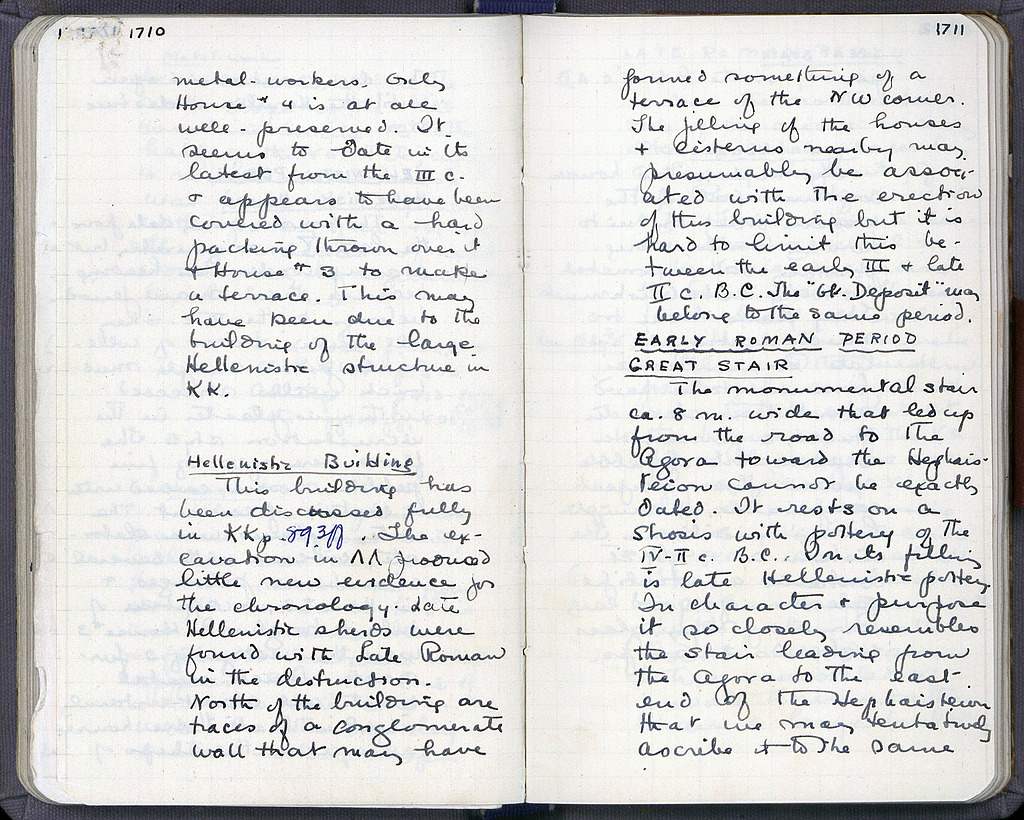 1710
metal-workers. Only
House #4 is at all
well-preserved. It
seems to date in its
latest from the III c.
+ appears to have been
covered with a hard
packing thrown over it
+ House #3 to make
a terrace. This may
have been due to the
building of the large
Hellenistic structure in
KK.
Hellenistic Building
This building has
been discussed fully
in KK p. 893ff. The ex-
cavation in ΛΛ produced
little new evidence for
the chronology. Late
Hellenistic sherds were
found with Late Roman
in the destruction.
North of the building are
traces of a conglomerate
wall that may have
1711
formed something of a
terrace of the NW corner.
The filling of the houses
+ cisterns nearby may
presumably be associ-
ated with the erection
of this building but it is
hard to limit this be-
tween the early III + late
II c. B.C. The "Gt. Deposit" may
belong to the same period.
EARLY ROMAN PERIOD
GREAT STAIR
The monumental stair
ca. 8 m. wide that led up
from the road to the
Agora toward the Hephais-
teion cannot be exactly
dated. It rests on a
strosis with pottery of the
IV-II c. B.C. On its filling
is late Hellenistic pottery.
In character + purpose
it so closely resembles
the stair leading from
the Agora to the east
end of the Hephaisteion
that we may tentatively
ascribe it to the same